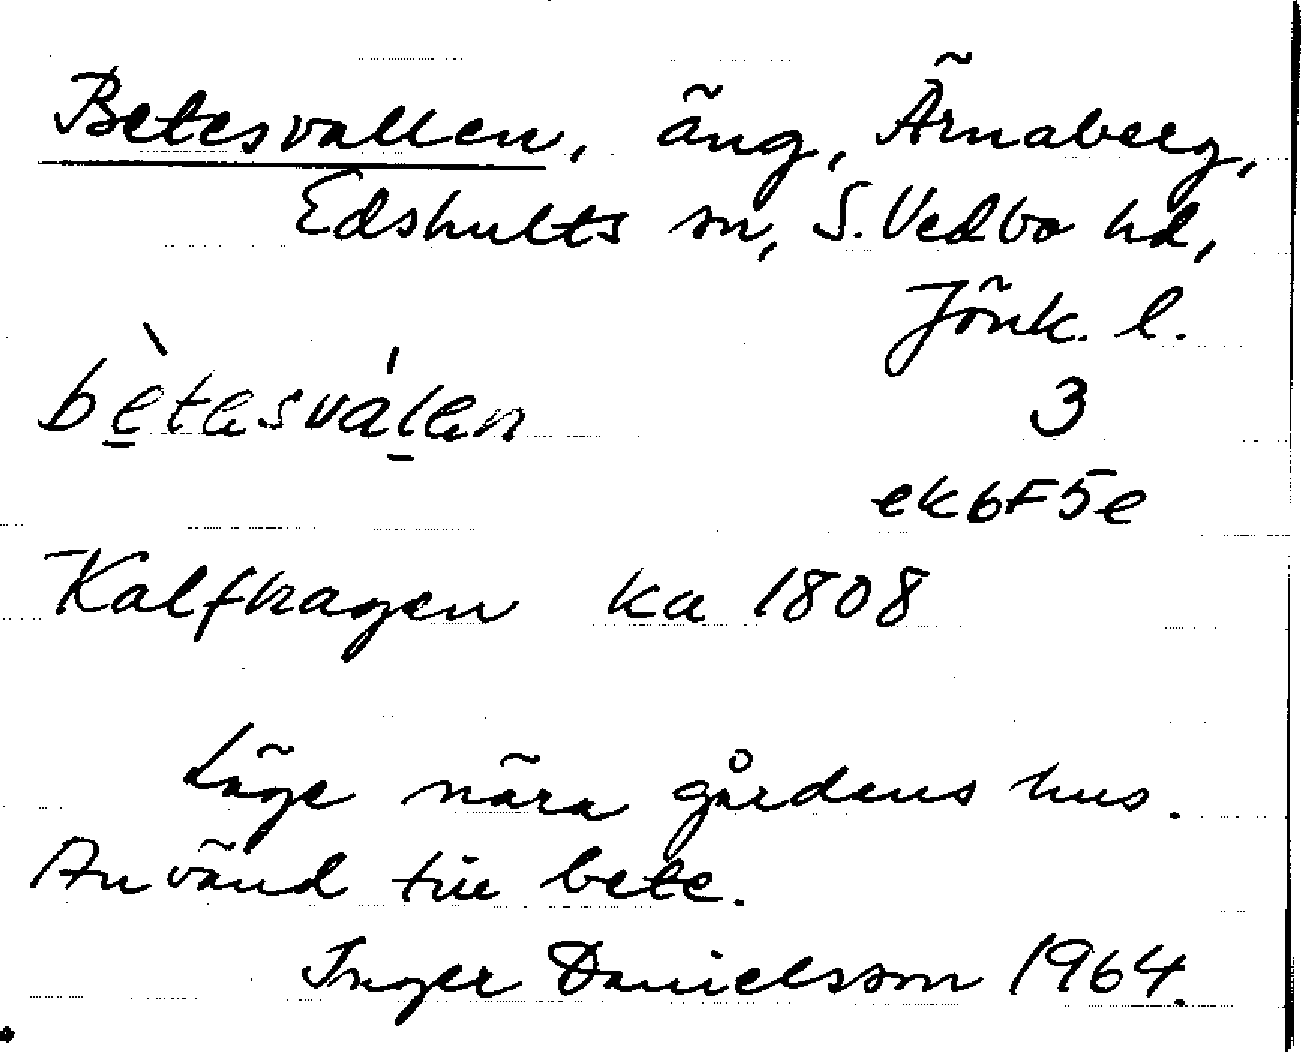 Betesvallen, äng, Ärnaberg,
Edshults sn, S. Vedbo hd,
Jönk. l.
bètesválen 3
ek6F5e
Kalfhagen ka 1808
Läge nära gårdens hus.
Använd till bete.
Inger Danielsson 1964.